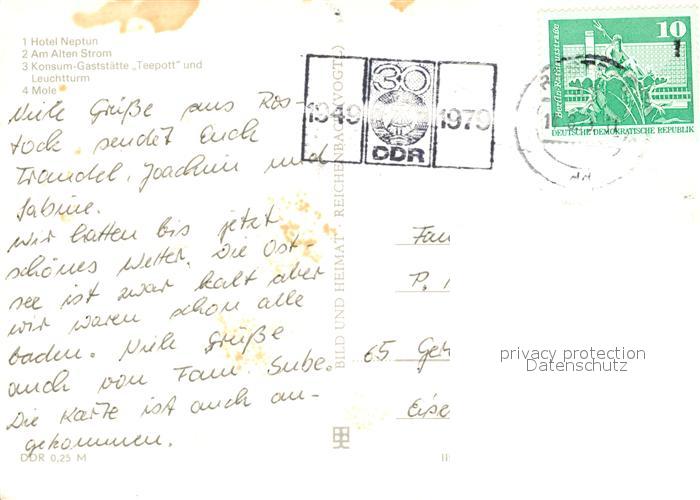 1 Hotel Neptun
2 Am Alten Strom
3 Konsum-Gaststätte „Teepott" und
Leuchtturm
4 Mole
Viele Grüße aus Ros-
tock sendet Euch
Traudel, Joachim und
Sabine.
Wir hatten bis jetzt
schönes Wetter. Die Ost-
see ist zwar kalt aber
wir waren schon alle
baden. Viele Grüße
auch von Fam. Sube.
Die Karte ist auch an-
gekommen.
DDR 0,25 M
BILD UND HEIMAT REICHENBACH (VOGTL)
1949 30 1979
DDR
10
Berlin-Rathausstraße
DEUTSCHE DEMOKRATISCHE REPUBLIK
Fam
P.
65 Ger
Eise
privacy protection
Datenschutz